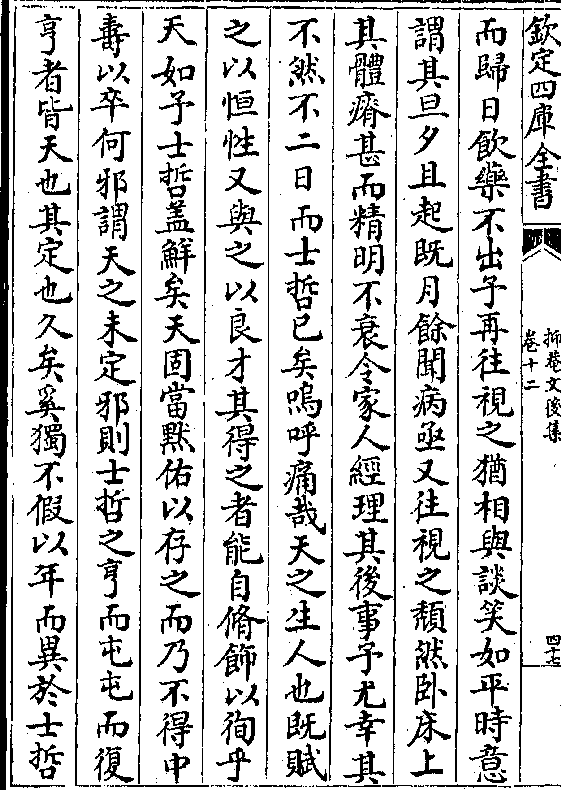 欽定四庫全書
抑菴文後集
卷十二
四十七
而歸日飲藥不出予再往視之猶相與談笑如平時意
謂其旦夕且起既月餘聞病亟又往視之頹然卧床上
其體瘠甚而精明不衰令家人經理其後事予尤幸其
不然不二日而士哲已矣嗚呼痛哉天之生人也既賦
之以恒性又與之以良才其得之者能自脩飾以徇乎
天如予士哲盖鮮矣天固當黙佑以存之而乃不得中
壽以卒何邪謂天之未定邪則士哲之亨而屯屯而復
亨者皆天也其定也久矣奚獨不假以年而異於士哲